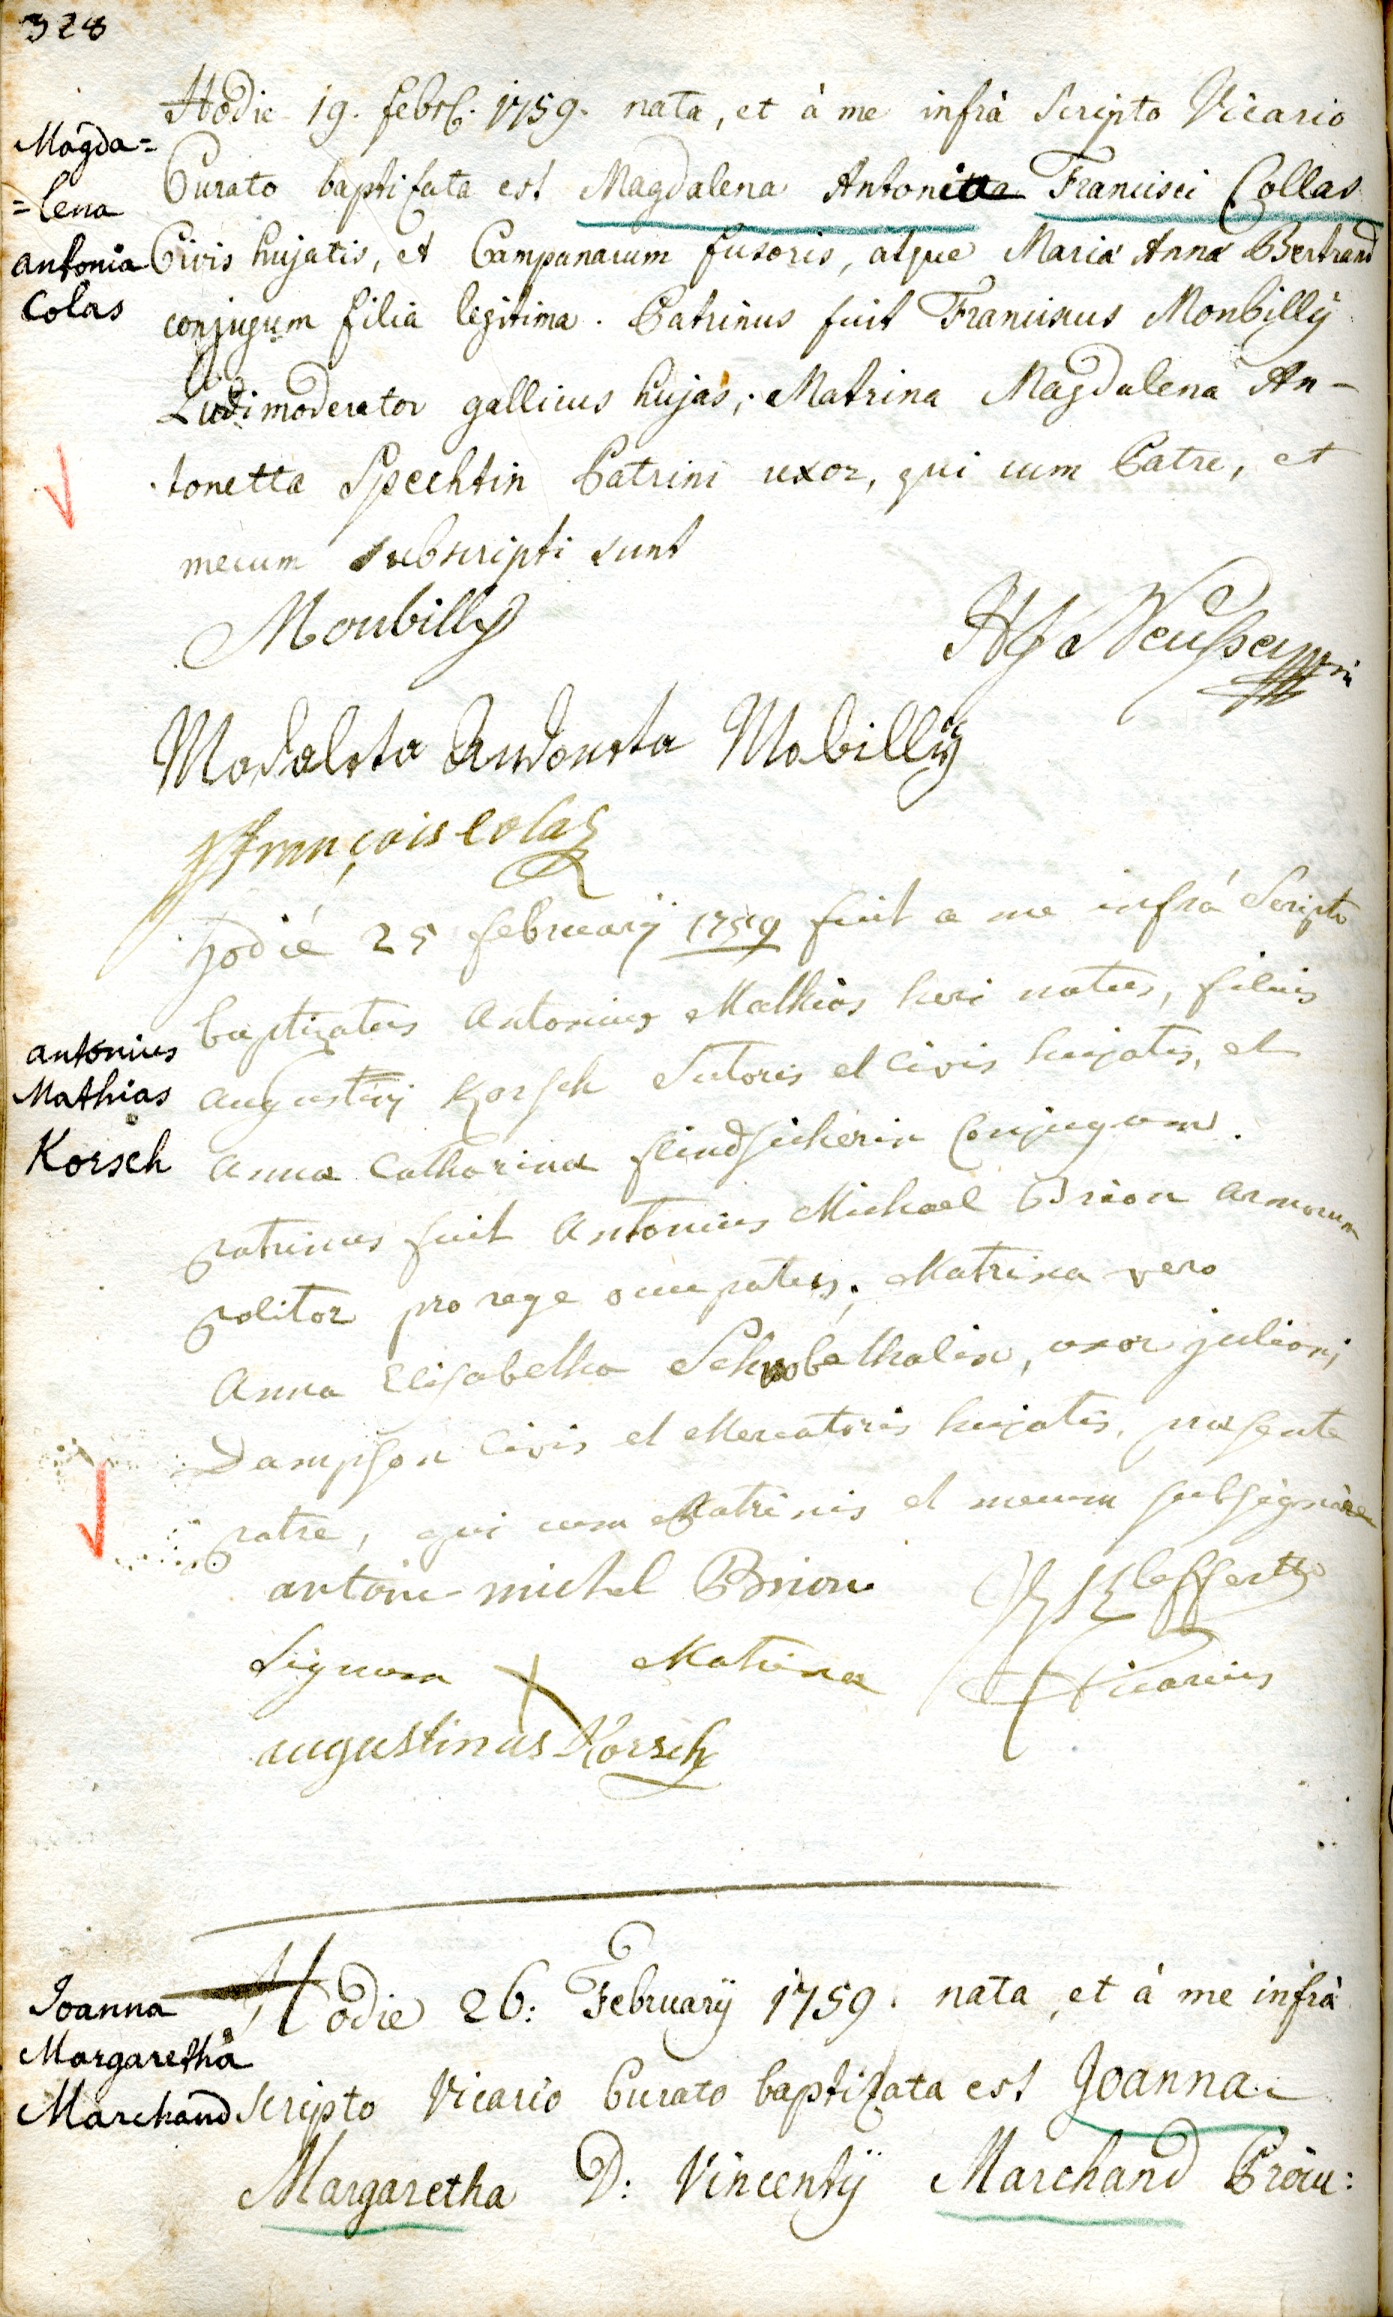 328
Hodie 19. febr. 1759. nata, et à me infrà scripto Vicario
Curato baptisata est Magdalena Antonitta Francisci Collas
Civis hujatis, et Campanarum fusoris, atque Maria Anna Bertrand
conjugum filia legitima. Patrinus fuit Franciscus Monbillÿ
Ludimoderator gallicus hujas, Matrina Magdalena An-
tonetta Spechtin Patrini uxor, qui cum Patre, et
mecum subscripti sunt
Magda=
=lena
antonia
Colas
Monbilly
Madaleta Andoneta Mobillÿ
françois Colas
hodié 25 februarÿ 1759 fuit a me infrá Scripto
baptizatus Antonius Mathias heri natus, filius
augustini Korsch Sutoris et Civis hujatis, et
anna Catharina Conjugum.
patrinus fuit Antonius Michael Brion armorum
politor pro rege occupatus, Matrina vero
Anna Elisabetha uxor juliani
Dampson Civis et Mercatoris hujatis, præsente
patre, qui cum patrinis et mecum subsignare
antonius
Mathias
Korsch
antoine michel Brion
Signum X Matrina
Vicarius
augustinus Korsch
Hodie 26: Februarÿ 1759. nata, et à me infrà
scripto Vicario Curato baptisata est Joanna
Margaretha D: Vincentÿ Marchand
Joanna
Margaretha
Marchand